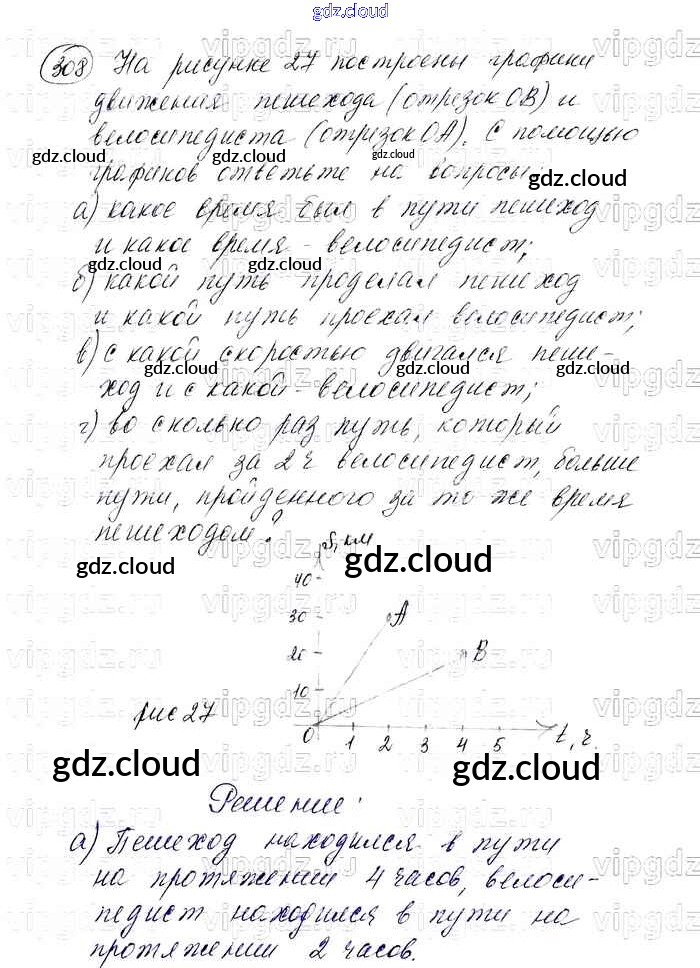 gdz.cloud
308 На рисунке 27 построены графики
движения пешехода (отрезок OB) и
велосипедиста (отрезок OA). С помощью
графиков ответьте на вопросы:
а) какое время был в пути пешеход
и какое время - велосипедист;
б) какой путь проделал пешеход
и какой путь проехал велосипедист;
в) с какой скоростью двигался пеше-
ход и с какой - велосипедист;
г) во сколько раз путь, который
проехал за 2 ч велосипедист, больше
пути, пройденного за то же время
пешеходом?
S, км
40
30 A
20 B
10
рис 27
0 1 2 3 4 5 t, ч.
gdz.cloud
Решение:
а) Пешеход находился в пути
на протяжении 4 часов, велоси-
педист находился в пути на
протяжении 2 часов.